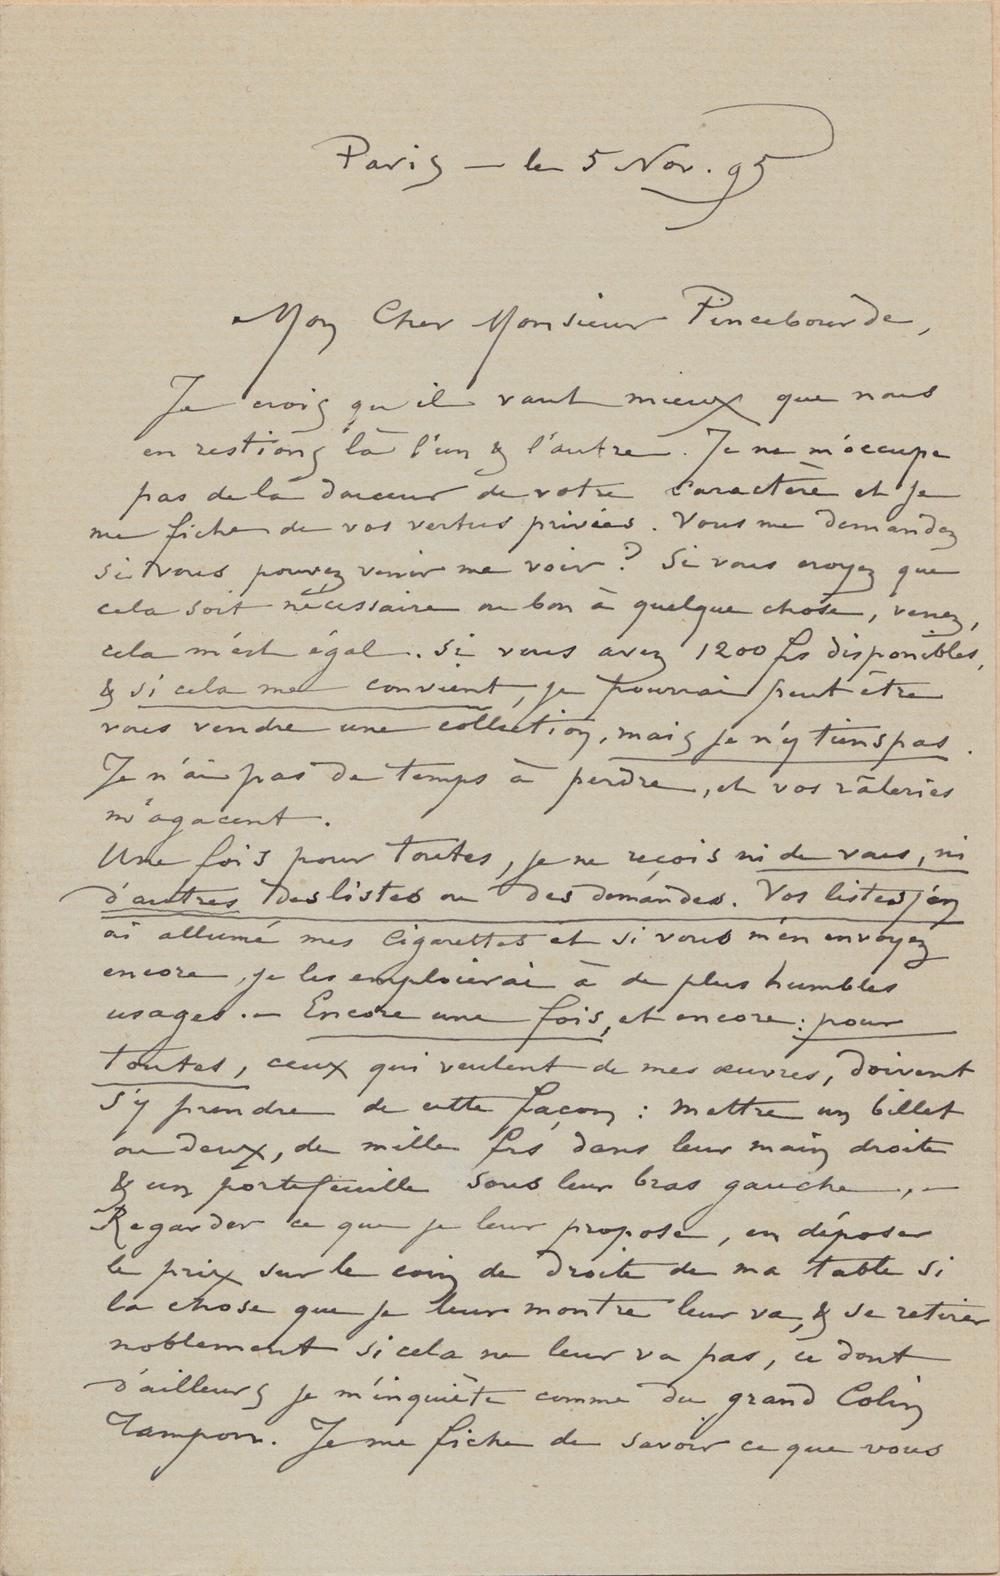 Paris — le 5 Nov. 95
Mon Cher Monsieur Pincebourde,
Je crois qu'il vaut mieux que nous
en restions là l'un & l'autre. Je ne m'occupe
pas de la douceur de votre caractère et je
me fiche de vos vertus privées. Vous me demandez
si vous pouvez venir me voir ? Si vous croyez que
cela soit nécessaire ou bon à quelque chose, venez,
cela m'est égal. Si vous avez 1200 frs disponibles,
& si cela me convient, je pourrai peut être
vous vendre une collection, mais je n'y tiens pas.
Je n'ai pas de temps à perdre, et vos râleries
m'agacent.
Une fois pour toutes, je ne reçois ni de vous, ni
d'autres des listes ou des demandes. Vos listes j'en
ai allumé mes cigarettes et si vous m'en envoyez
encore, je les emploierai à de plus humbles
usages. — Encore une fois, et encore : pour
toutes, ceux qui veulent de mes œuvres, doivent
s'y prendre de cette façon : mettre un billet
ou deux, de mille frs dans leur main droite
& un portefeuille sous leur bras gauche, —
Regarder ce que je leur propose, en déposer
le prix sur le coin de droite de ma table si
la chose que je leur montre leur va, & se retirer
noblement si cela ne leur va pas, ce dont
d'ailleurs je m'inquiète comme du grand Colin
Tampon. Je me fiche de savoir ce que vous